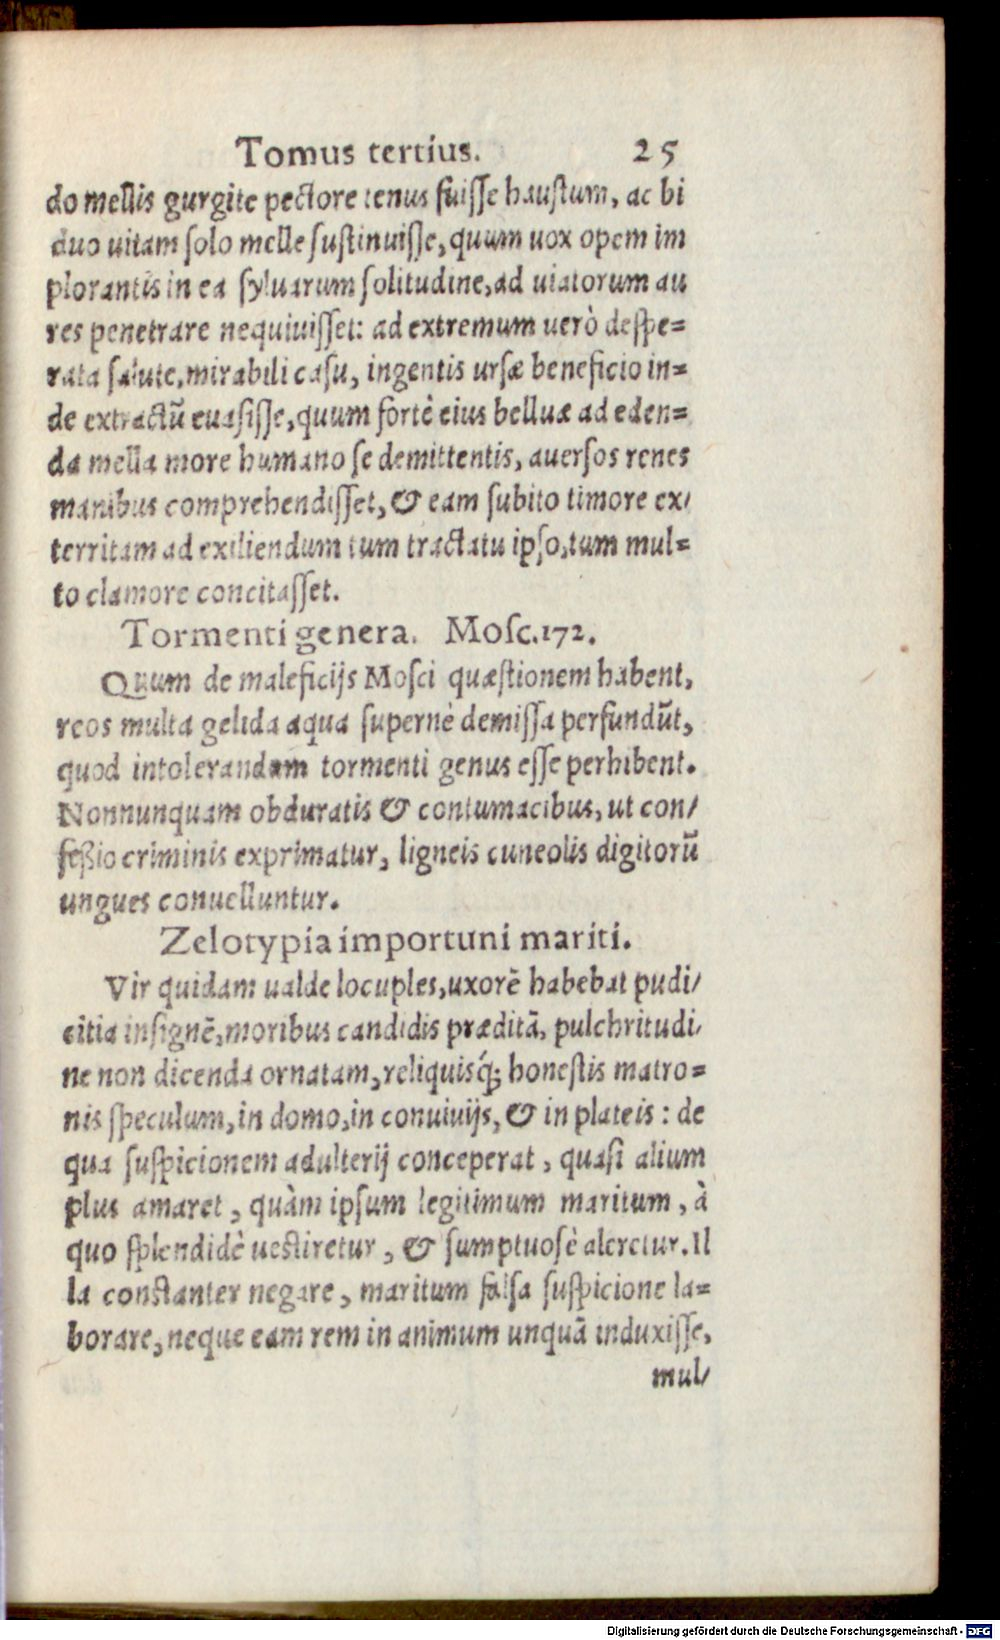 Tomus tertius. 25
do mellis gurgite pectore tenus fuiſſe hauſtum, ac bi
duo uitam ſolo melle ſuſtinuiſſe, quum uox opem im
plorantis in ea ſyluarum ſolitudine, ad uiatorum au
res penetrare nequiuiſſet: ad extremum uerò deſpe=
rata ſalute, mirabili caſu, ingentis urſæ beneficio in=
de extractũ euaſiſſe, quum fortè eius belluæ ad eden=
da mella more humano ſe demittentis, auerſos renes
manibus comprehendiſſet, & eam ſubito timore ex/
territam ad exiliendum tum tractatu ipſo, tum mul=
to clamore concitaſſet.
Tormenti genera. Moſc. 172.
Quum de maleficijs Moſci quæſtionem habent,
reos multa gelida aqua ſupernè demiſſa perfundũt,
quod intolerandam tormenti genus eſſe perhibent.
Nonnunquam obduratis & contumacibus, ut con/
feßio criminis exprimatur, ligneis cuneolis digitorũ
ungues conuelluntur.
Zelotypia importuni mariti.
Vir quidam ualde locuples, uxorẽ habebat pudi/
citia inſignẽ, moribus candidis præditã, pulchritudi/
ne non dicenda ornatam, reliquisq́; honeſtis matro=
nis ſpeculum, in domo, in conuiuijs, & in plateis: de
qua ſuſpicionem adulterij conceperat, quaſi alium
plus amaret, quàm ipſum legitimum maritum, à
quo ſplendidè ueſtiretur, & ſumptuoſè aleretur. Il
la conſtanter negare, maritum falſa ſuſpicione la=
borare, neque eam rem in animum unquã induxiſſe,
mul/
Digitalisierung gefördert durch die Deutsche Forschungsgemeinschaft - DFG